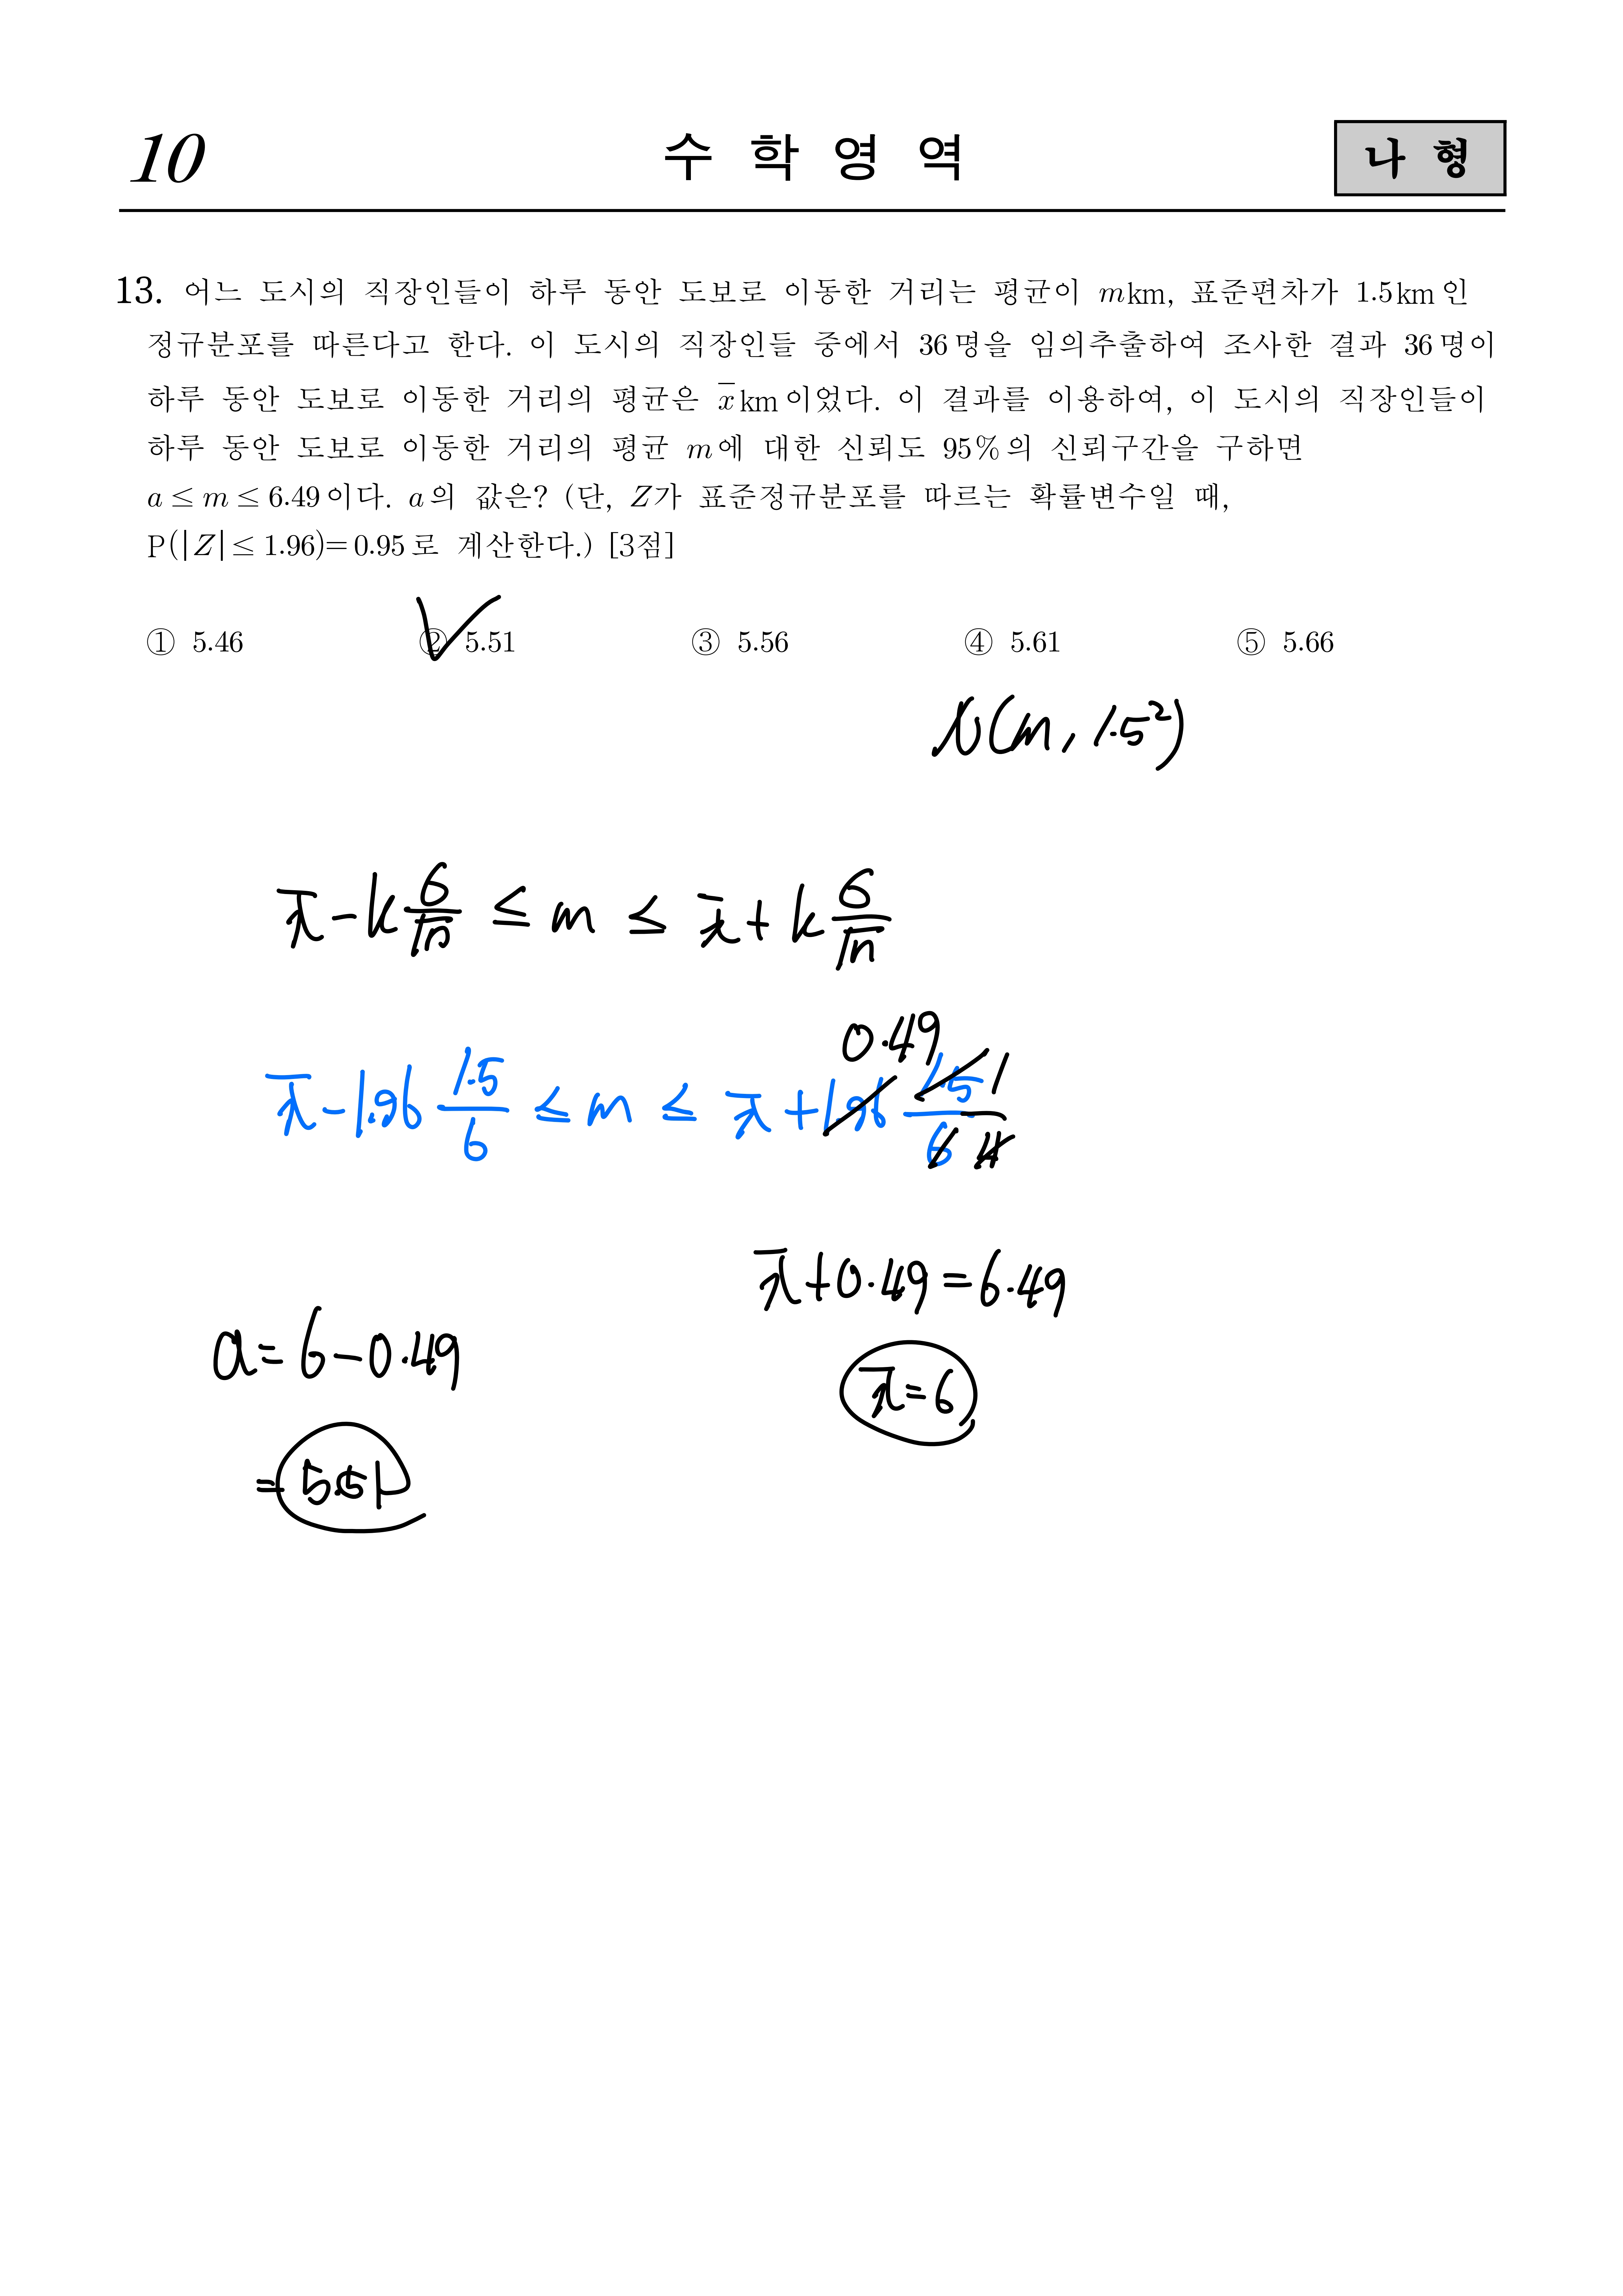 10 수 학 영 역 나 형
13. 어느 도시의 직장인들이 하루 동안 도보로 이동한 거리는 평균이 m km, 표준편차가 1.5 km인
정규분포를 따른다고 한다. 이 도시의 직장인들 중에서 36명을 임의추출하여 조사한 결과 36명이
하루 동안 도보로 이동한 거리의 평균은 x̅ km이었다. 이 결과를 이용하여, 이 도시의 직장인들이
하루 동안 도보로 이동한 거리의 평균 m에 대한 신뢰도 95%의 신뢰구간을 구하면
a ≤ m ≤ 6.49이다. a의 값은? (단, Z가 표준정규분포를 따르는 확률변수일 때,
P(|Z| ≤ 1.96)=0.95로 계산한다.) [3점]
① 5.46 ② 5.51 ③ 5.56 ④ 5.61 ⑤ 5.66
N(m, 1.5²)
x̅ - k σ/√n ≤ m ≤ x̅ + k σ/√n
0.49
x̅ - 1.96 1.5/6 ≤ m ≤ x̅ + 1.96 1.5/6 1/4
x̅ + 0.49 = 6.49
a = 6 - 0.49
x̅ = 6
= 5.51